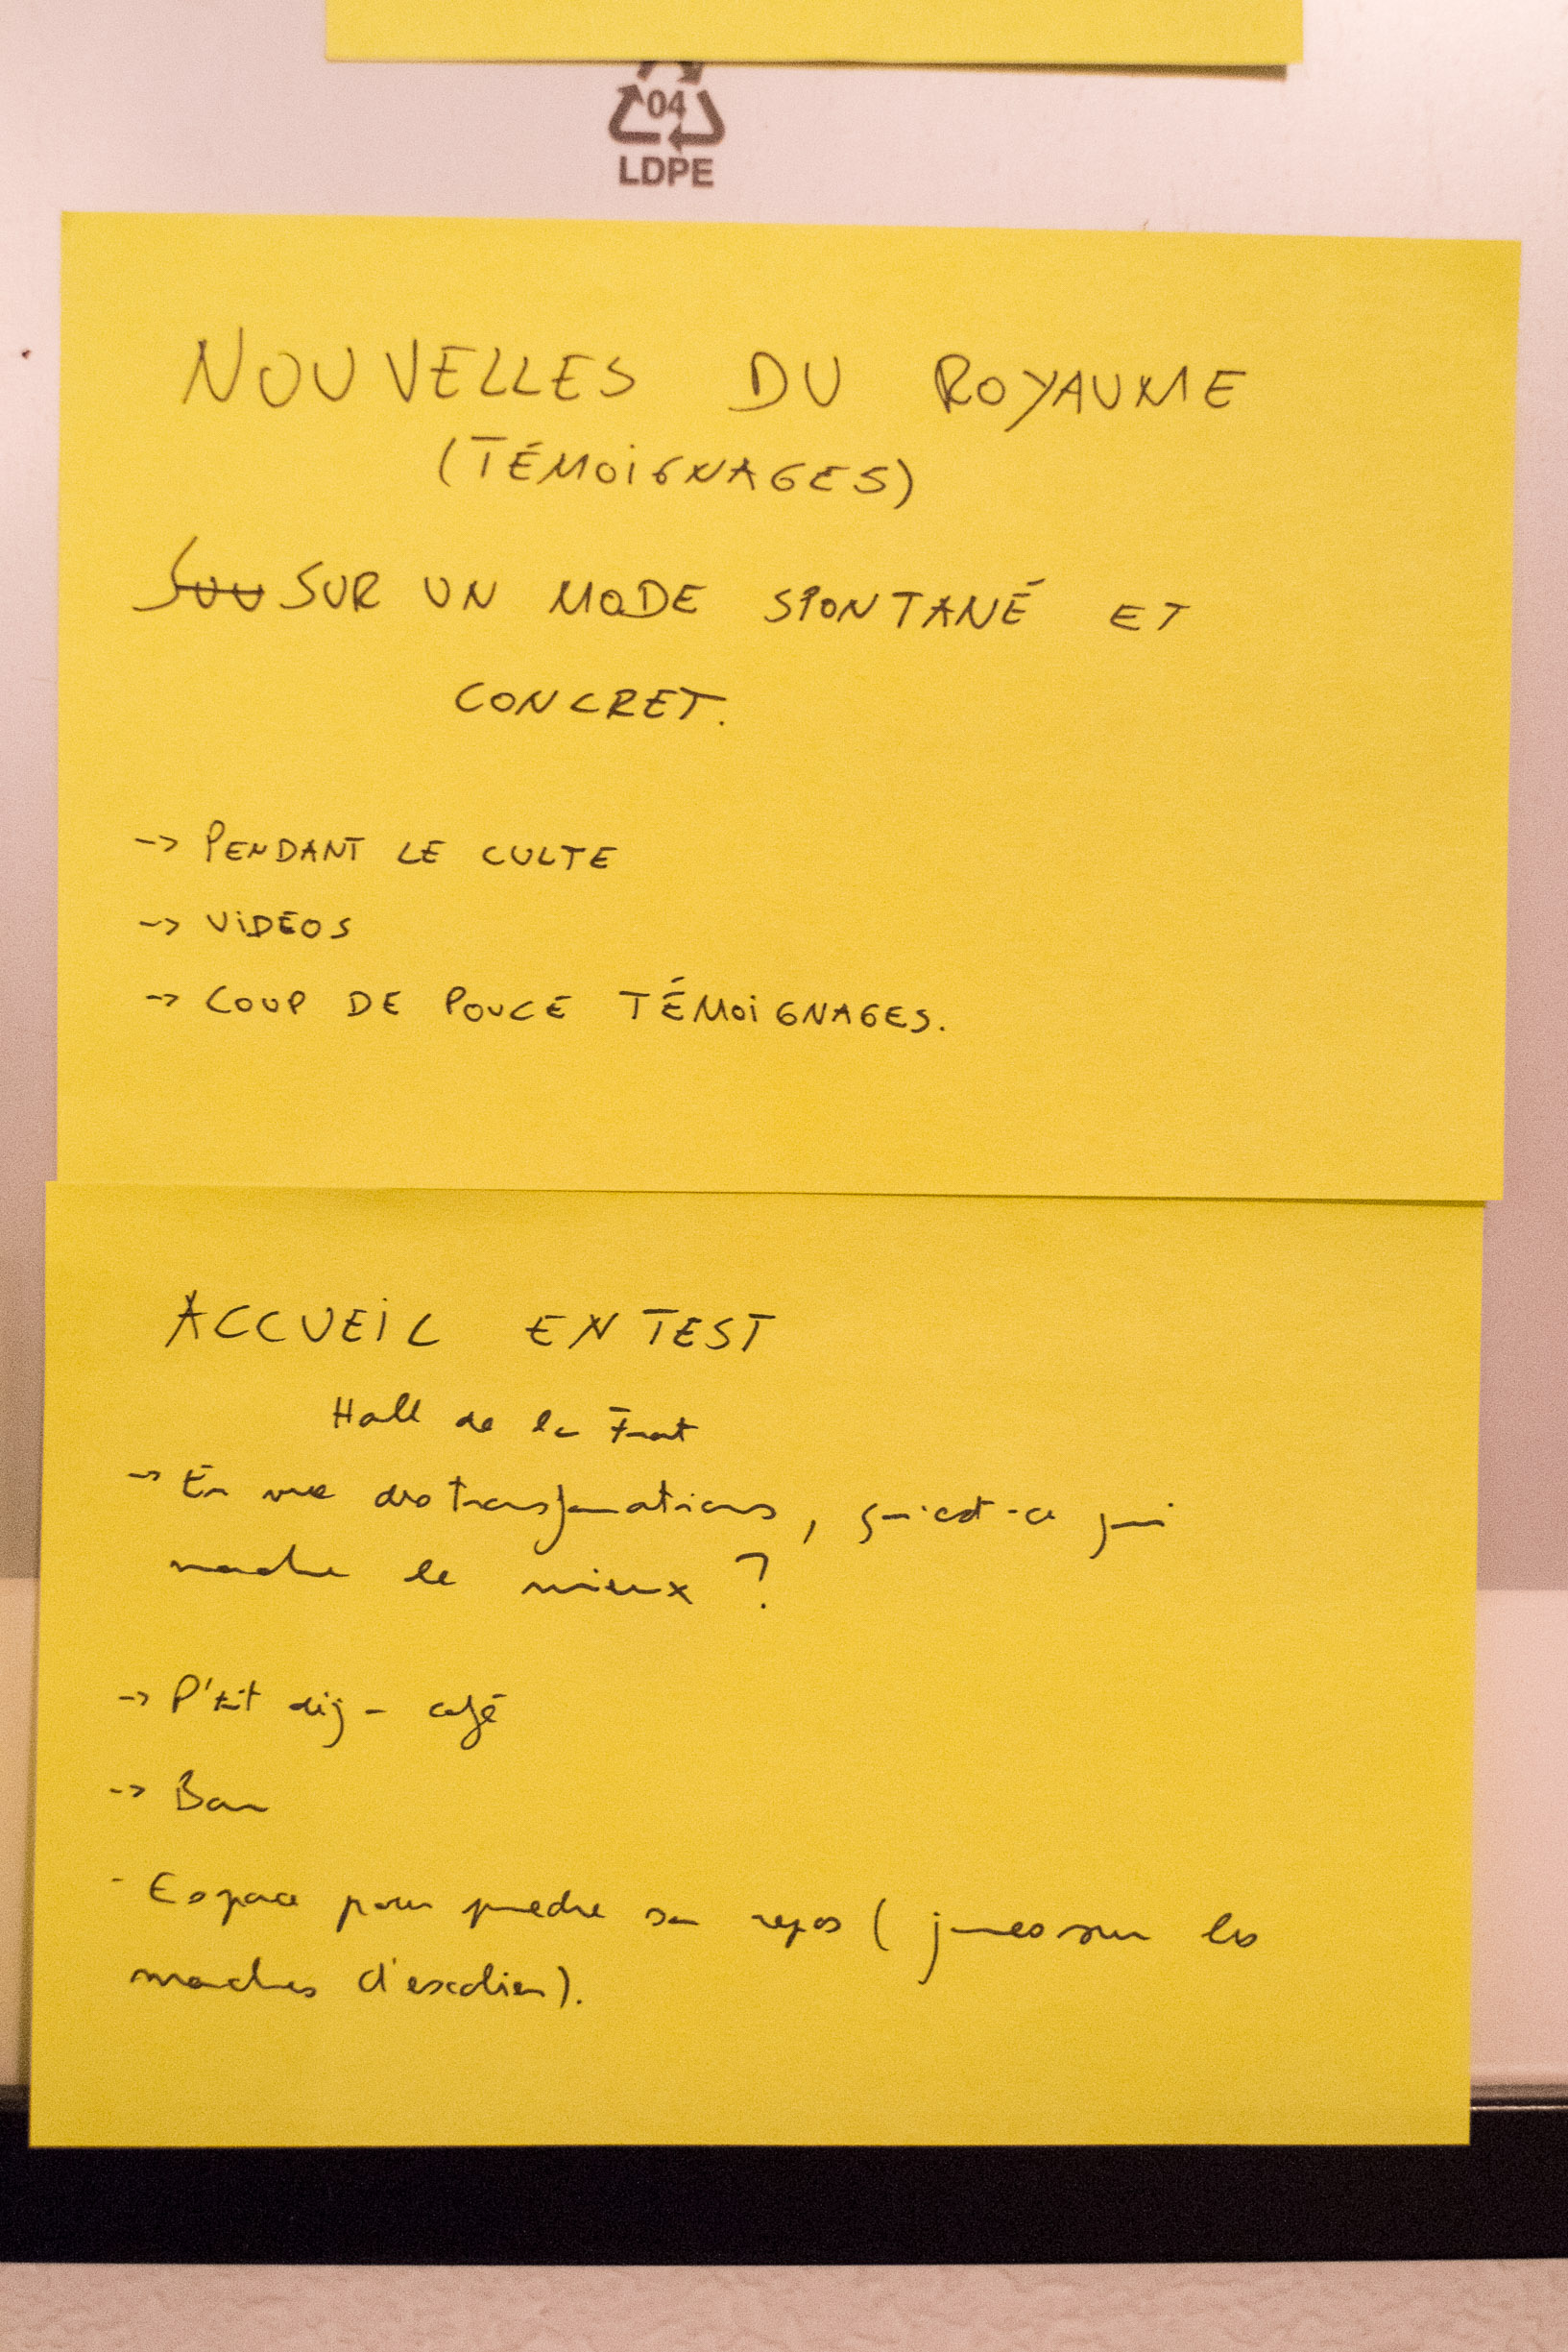 04
LDPE
NOUVELLES DU ROYAUME
(TÉMOiGNAGES)
SUR UN MODE SPONTANÉ ET
CONCRET.
-> PENDANT LE CULTE
-> ViDÉOS
-> COUP DE POUCE TÉMOiGNAGES.
ACCUEiL EN TEST
Hall de la Frat
-> En vue des transformations, qu'est-ce qui
marche le mieux ?
-> P'tit déj - café
-> Bar
- Espace pour prendre son repas (jeunes sur les
marches d'escalier).